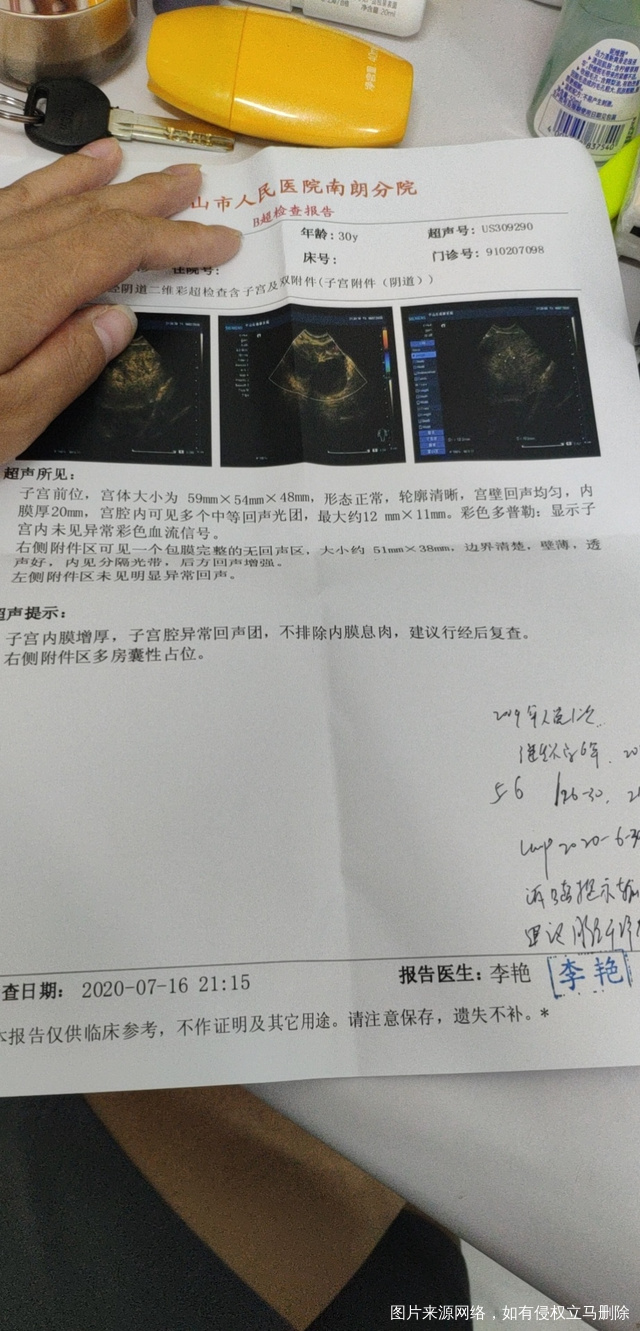 净含量 20ml
净含量 40m
山市人民医院南朗分院
B超检查报告
年龄: 30y
超声号: US309290
住院号:
床号:
门诊号: 910207098
经阴道二维彩超检查含子宫及双附件(子宫附件(阴道))
超声所见:
子宫前位，宫体大小为 59mm×54mm×48mm，形态正常，轮廓清晰，宫壁回声均匀，内
膜厚20mm，宫腔内可见多个中等回声光团，最大约12 mm×11mm。彩色多普勒: 显示子
宫内未见异常彩色血流信号。
右侧附件区可见一个包膜完整的无回声区，大小约 51mm×38mm，边界清楚，壁薄，透
声好，内见分隔光带，后方回声增强。
左侧附件区未见明显异常回声。
超声提示:
子宫内膜增厚，子宫腔异常回声团，不排除内膜息肉，建议行经后复查。
右侧附件区多房囊性占位。
5-6
26-30
Lmp 2020-6-
查日期: 2020-07-16 21:15
报告医生: 李艳
李艳
本报告仅供临床参考，不作证明及其它用途。请注意保存，遗失不补。*
图片来源网络，如有侵权立马删除